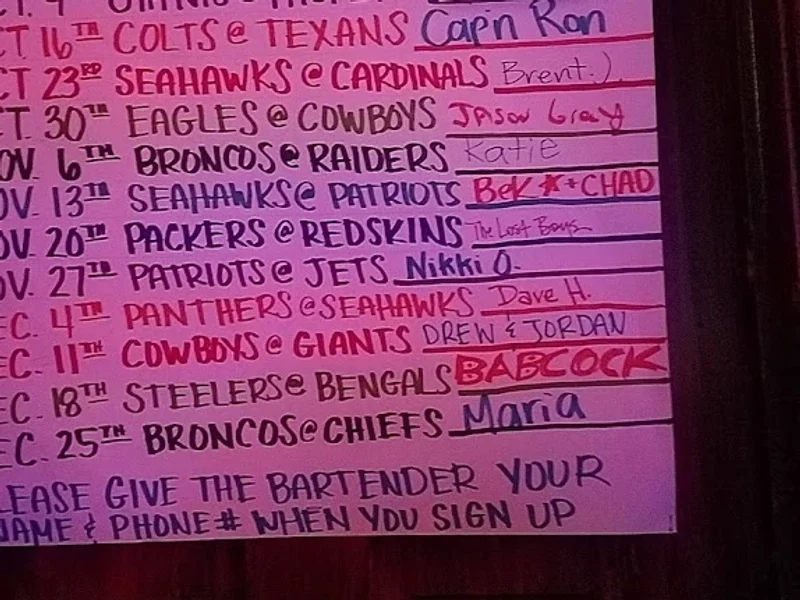 CT 16TH COLTS @ TEXANS Cap'n Ron
CT 23RD SEAHAWKS @ CARDINALS Brent.)
CT. 30TH EAGLES @ COWBOYS JASON Gray
OV. 6TH BRONCOS @ RAIDERS Katie
OV. 13TH SEAHAWKS @ PATRIOTS BEK ★ + CHAD
OV. 20TH PACKERS @ REDSKINS The Lost Boys
OV. 27TH PATRIOTS @ JETS Nikki O.
EC. 4TH PANTHERS @ SEAHAWKS Dave H.
EC. 11TH COWBOYS @ GIANTS DREW & JORDAN
EC. 18TH STEELERS @ BENGALS BABCOCK
EC. 25TH BRONCOS @ CHIEFS Maria
LEASE GIVE THE BARTENDER YOUR
NAME & PHONE # WHEN YOU SIGN UP